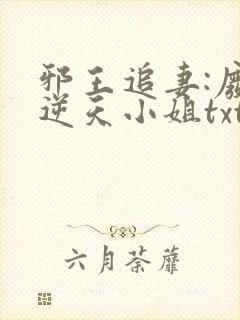 邪王追妻:废
逆天小姐txt
六月荼蘼